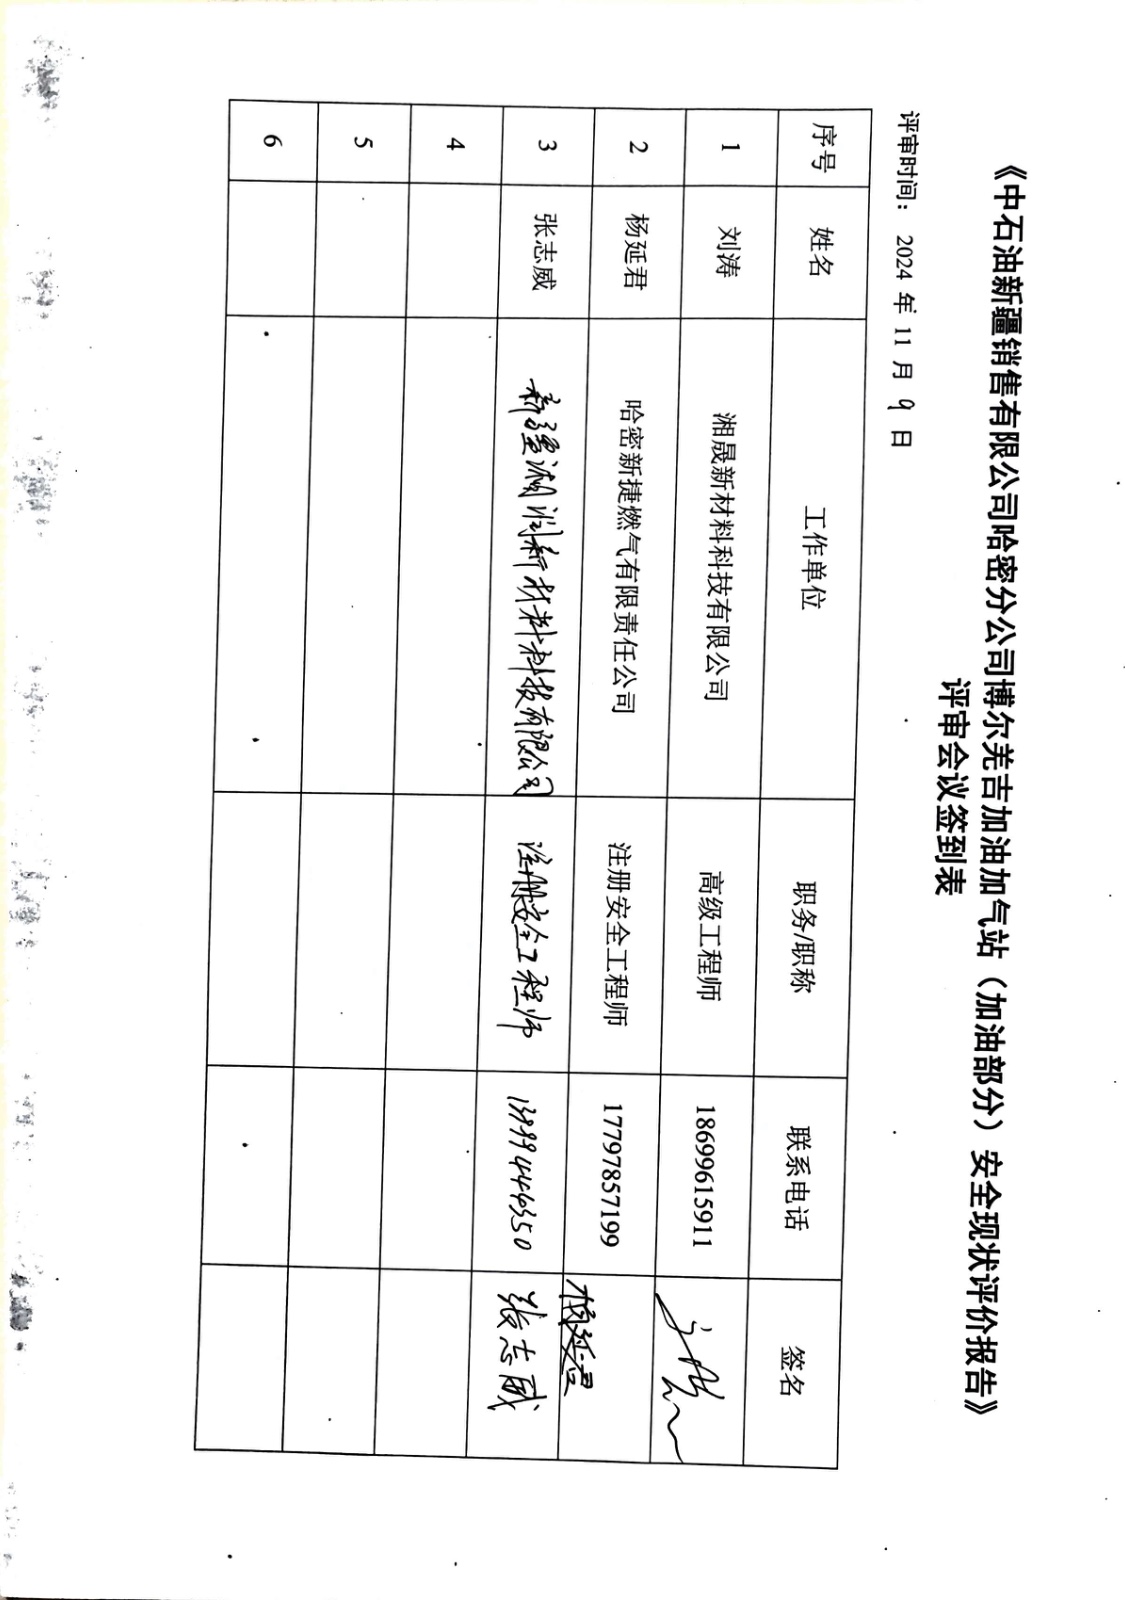 《中石油新疆销售有限公司哈密分公司博尔羌吉加油加气站（加油部分）安全现状评价报告》
评审会议签到表
评审时间： 2024 年 11 月 9 日
序号 姓名 工作单位 职务/职称 联系电话 签名
1 刘涛 湘晟新材料科技有限公司 高级工程师 18699615911
2 杨延君 哈密新捷燃气有限责任公司 注册安全工程师 17797857199 杨延君
3 张志威 新疆湘润新材料科技有限公司 注册安全工程师 13999446350 张志威
4
5
6